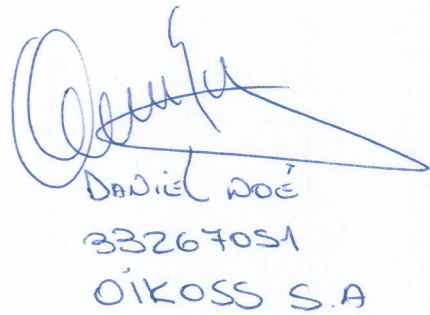 DANIEL NOÉ
33267051
OIKOSS S.A